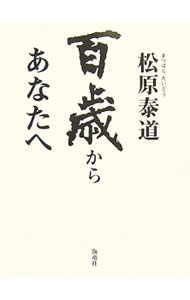 松原泰道
まつばら たいどう
百歳から
あなたへ
海竜社